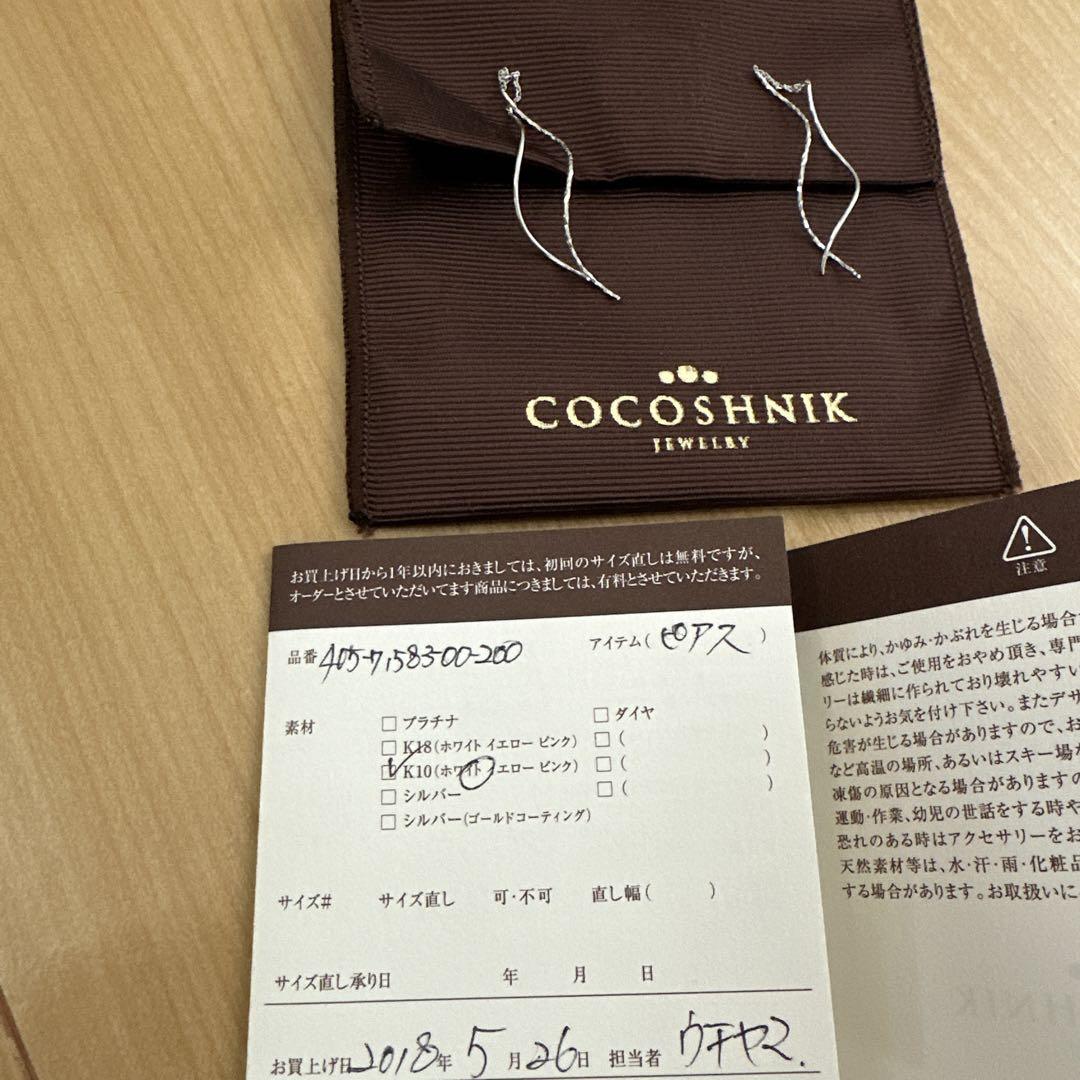 COCOSHNIK
JEWELRY
お買上げ日から1年以内におきましては、初回のサイズ直しは無料ですが、
オーダーとさせていただいてます商品につきましては、有料とさせていただきます。
品番 405-7158300-200 アイテム( ピアス )
素材
□ プラチナ □ ダイヤ
□ K18(ホワイト イエロー ピンク) □ ( )
☑ K10(ホワイト イエロー ピンク) □ ( )
□ シルバー □ ( )
□ シルバー(ゴールドコーティング)
サイズ# サイズ直し 可・不可 直し幅( )
サイズ直し承り日 年 月 日
お買上げ日 2018年 5月 26日 担当者 ウチヤマ.
注意
体質により、かゆみ・かぶれを生じる場合
感じた時は、ご使用をおやめ頂き、専門
リーは繊細に作られており壊れやすい
らないようお気を付け下さい。またデザ
危害が生じる場合がありますので、お
など高温の場所、あるいはスキー場
凍傷の原因となる場合がありますの
運動・作業、幼児の世話をする時や
恐れのある時はアクセサリーをお
天然素材等は、水・汗・雨・化粧品
する場合があります。お取扱いに
HNIK